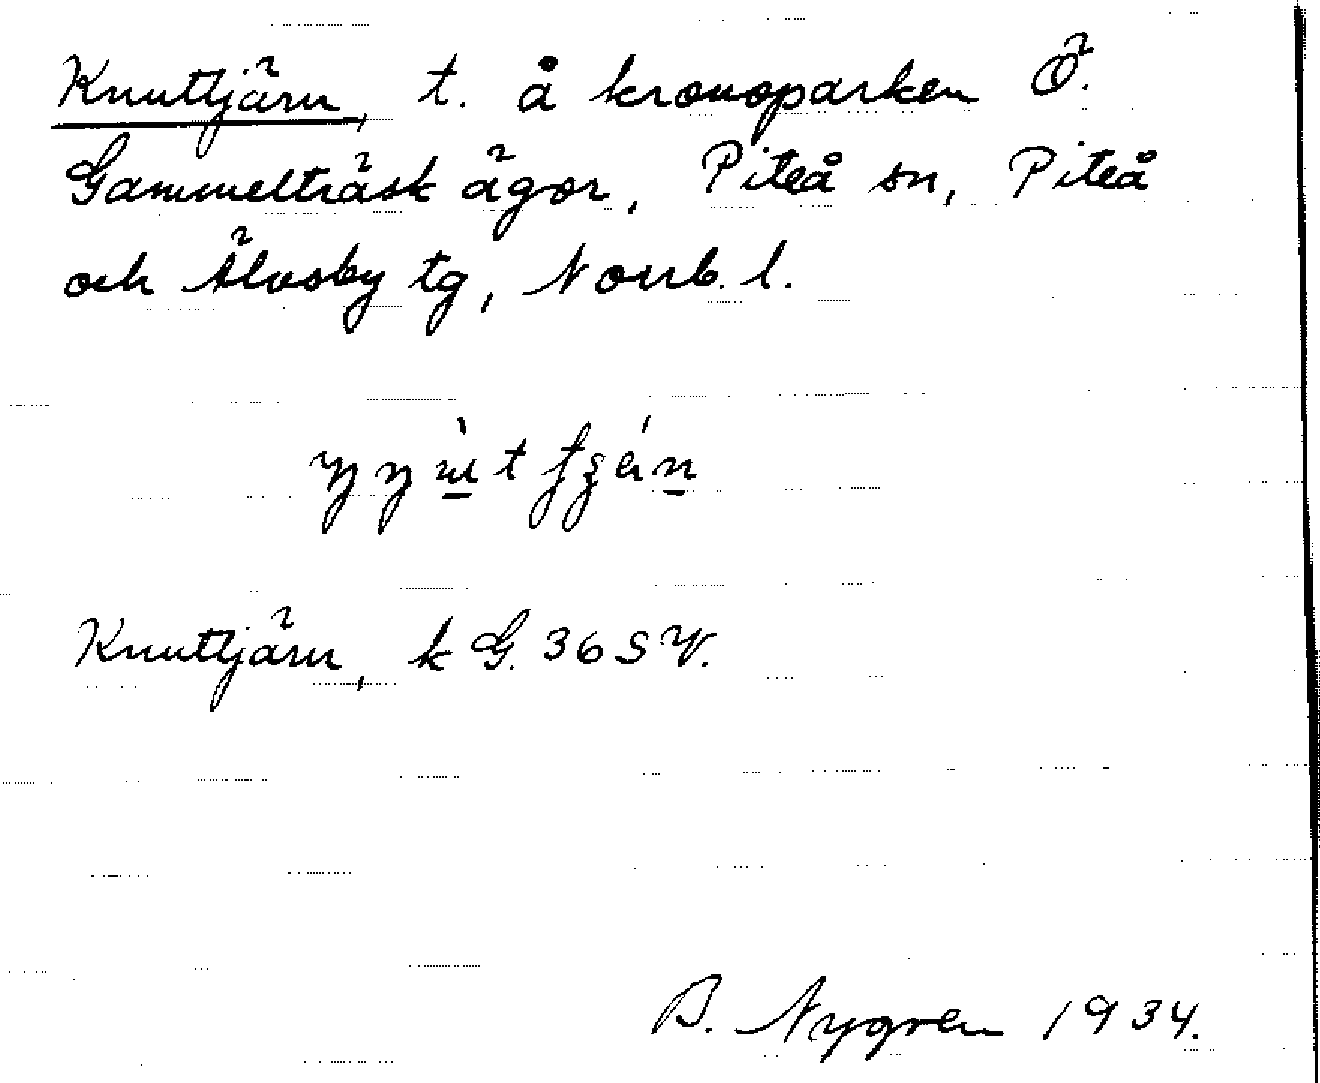 Knuttjärn, t. å kronoparken Ö.
Gammelträsk ägor, Piteå sn, Piteå
och Älvsby tg, Norrb. l.
Knuttjärn, k G. 36 S V.
B. Nygren 1934.